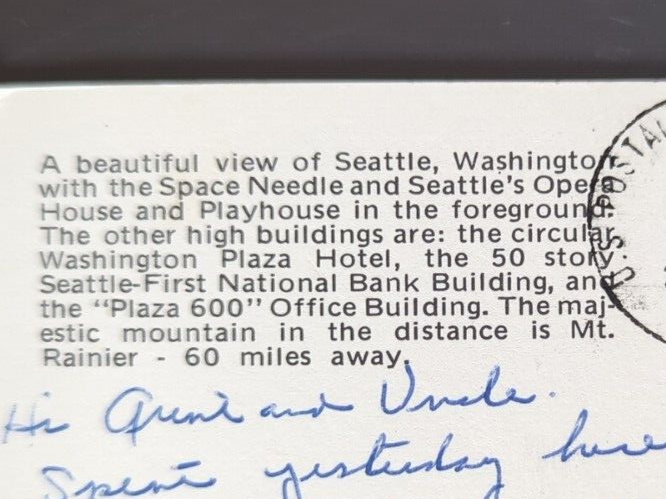 A beautiful view of Seattle, Washington
with the Space Needle and Seattle's Opera
House and Playhouse in the foreground.
The other high buildings are: the circular
Washington Plaza Hotel, the 50 story
Seattle-First National Bank Building, and
the "Plaza 600" Office Building. The maj-
estic mountain in the distance is Mt.
Rainier - 60 miles away.
U.S. POSTAL
Hi Aunt and Uncle.
Spent yesterday here